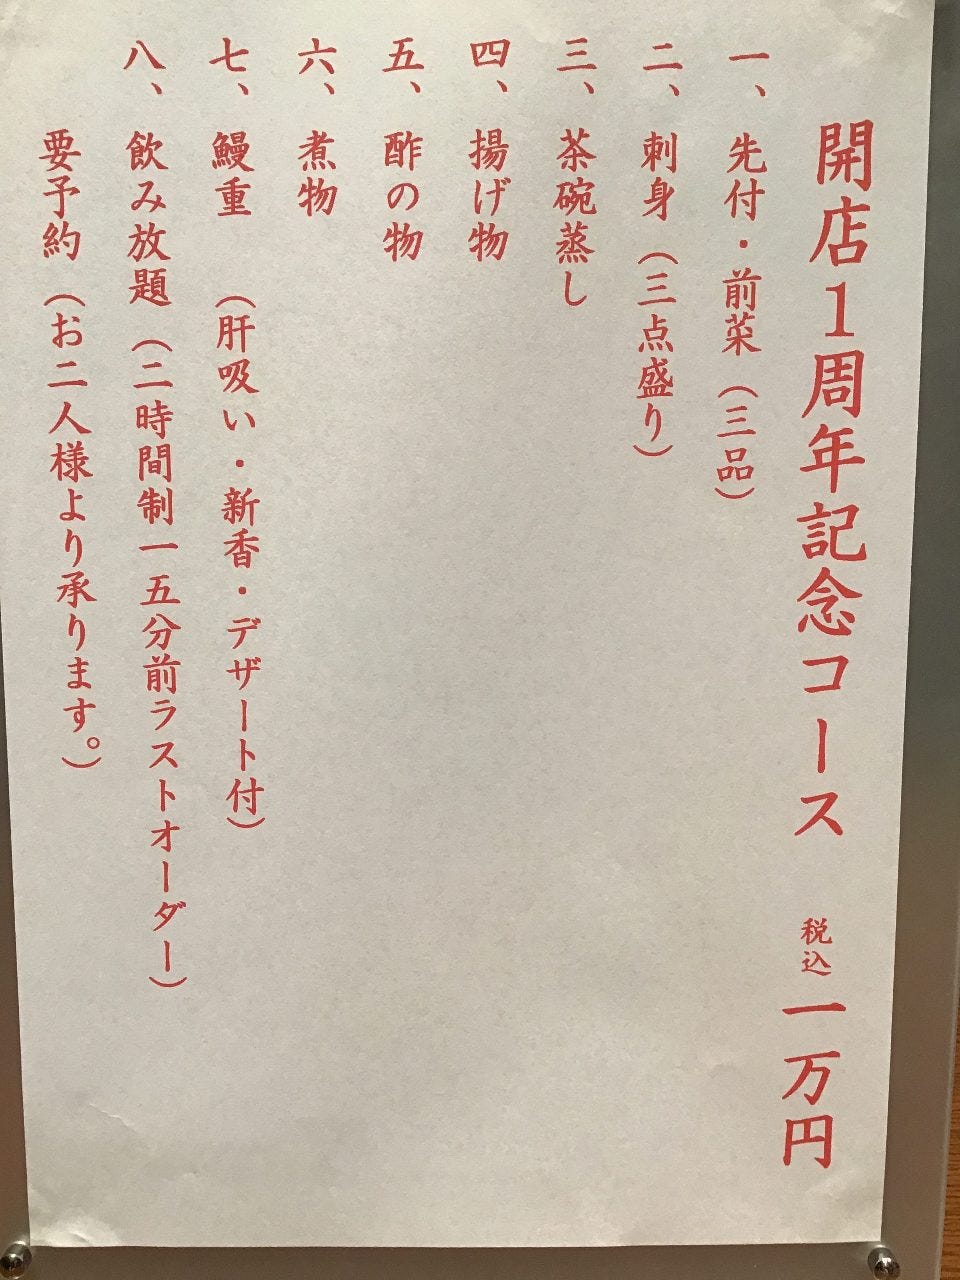 開店1周年記念コース 税込 一万円
一、先付・前菜（三品）
二、刺身（三点盛り）
三、茶碗蒸し
四、揚げ物
五、酢の物
六、煮物
七、鰻重 （肝吸い・新香・デザート付）
八、飲み放題（二時間制一五分前ラストオーダー）
要予約（お二人様より承ります。）